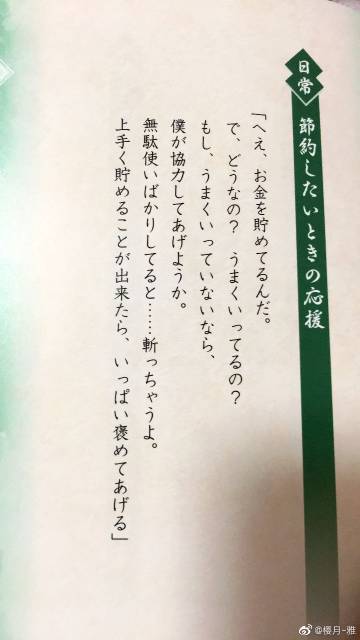 日常
節約したいときの応援
「へえ、お金を貯めてるんだ。
で、どうなの？　うまくいってるの？
もし、うまくいっていないなら、
僕が協力してあげようか。
無駄使いばかりしてると……斬っちゃうよ。
上手く貯めることが出来たら、いっぱい褒めてあげる」
@樱月-雅